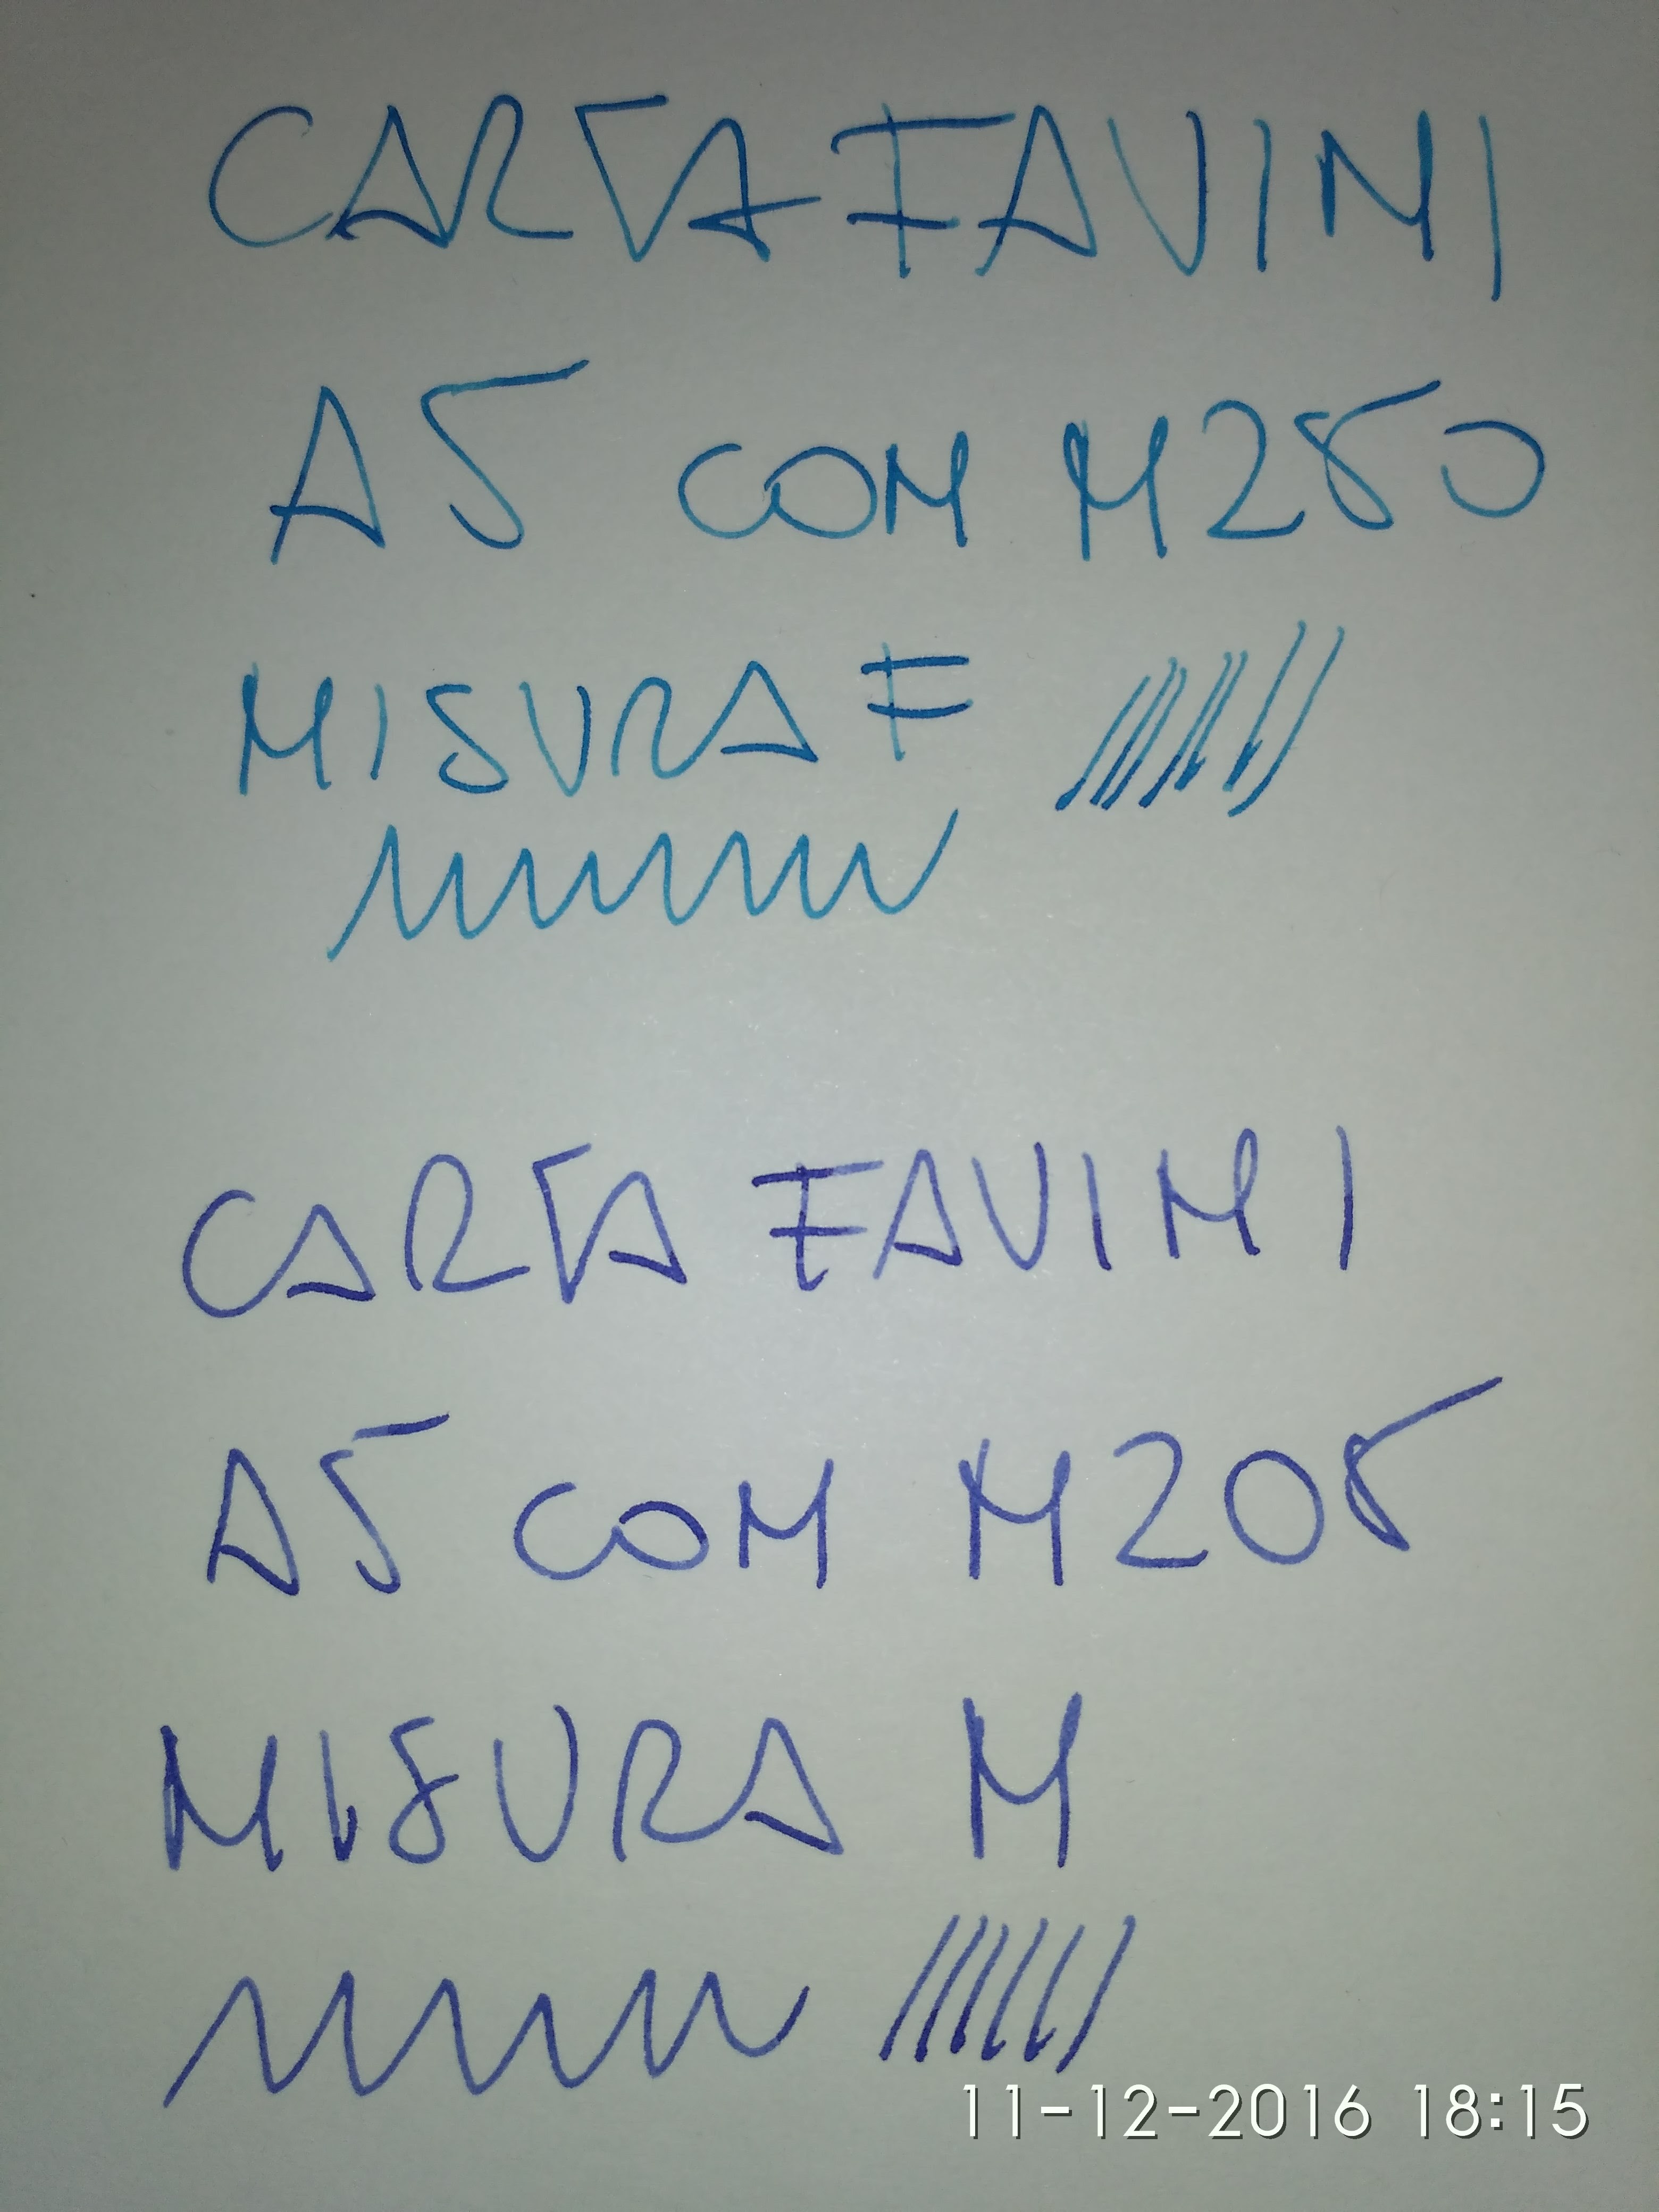 CARTA FAVINI
A5 CON M250
MISURA F
CARTA FAVINI
A5 CON M205
MISURA M
11-12-2016 18:15